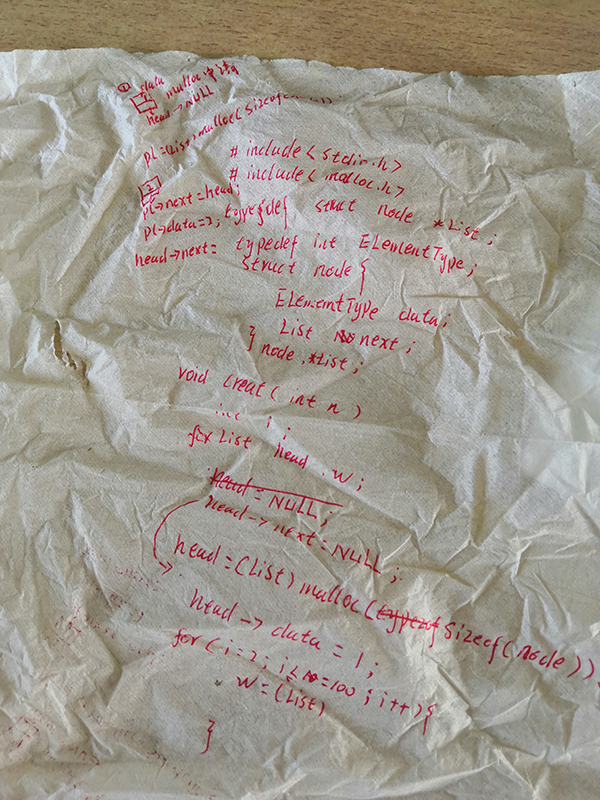 ① data
malloc申请
head→NULL
pl=(List)malloc(sizeof(node));
2
pl→next=head;
pl→data=2;
head→next=
# include< stdio.h>
# include< malloc.h>
typedef struct node *List;
typedef int ELementType;
struct node {
ELementType data;
List next;
} node,*List;
void creat( int n )
int i ;
for List head, w;
head = NULL;
head→next=NULL;
head=(List)malloc(typeof sizeof(node));
head→ data = 1;
for( i=2; i<n=100 ; i++){
w=(List)
}